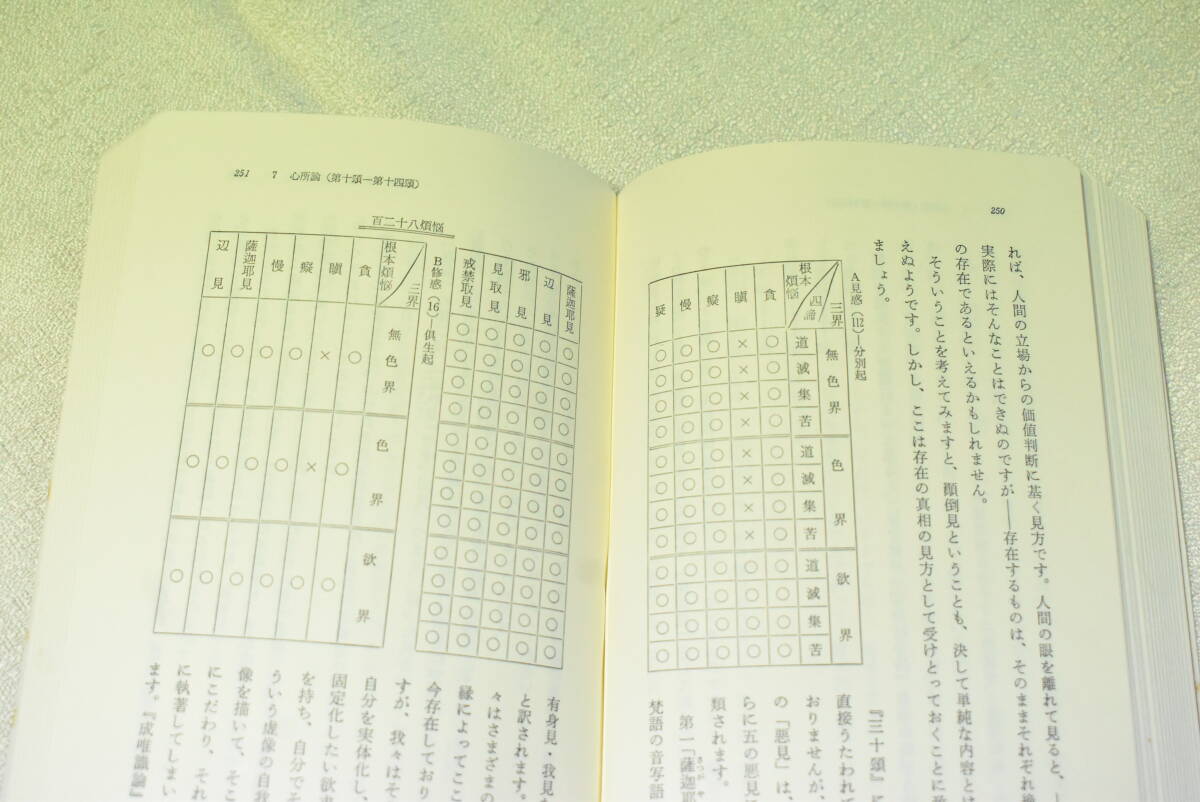 250
れば、人間の立場からの価値判断に基く見方です。人間の眼を離れて見ると、
実際にはそんなことはできぬのですが――存在するものは、そのままそれぞれ
の存在であるといえるかもしれません。
そういうことを考えてみますと、顚倒見ということも、決して単純な内容とは
えぬようです。しかし、ここは存在の真相の見方として受けとっておくことに
ましょう。
A見惑(112)―分別起
三界 四諦 根本煩悩
無色界 色界 欲界
道 滅 集 苦 道 滅 集 苦 道 滅 集 苦
貪 ○ ○ ○ ○ ○ ○ ○ ○ ○ ○ ○ ○
瞋 × × × × × × × × ○ ○ ○ ○
癡 ○ ○ ○ ○ ○ ○ ○ ○ ○ ○ ○ ○
慢 ○ ○ ○ ○ ○ ○ ○ ○ ○ ○ ○ ○
疑 ○ ○ ○ ○ ○ ○ ○ ○ ○ ○ ○ ○
『三十頌』
直接うたわれて
おりませんが、
の「悪見」は、
らに五の悪見に
類されます。
第一「薩迦耶
さつが や
梵語の音写語
251 7 心所論(第十頌―第十四頌)
薩迦耶見 ○ ○ ○ ○ ○ ○ ○ ○ ○ ○ ○ ○
辺見 ○ ○ ○ ○ ○ ○ ○ ○ ○ ○ ○ ○
邪見 ○ ○ ○ ○ ○ ○ ○ ○ ○ ○ ○ ○
見取見 ○ ○ ○ ○ ○ ○ ○ ○ ○ ○ ○ ○
戒禁取見 ○ ○ ○ ○ ○ ○ ○ ○ ○ ○ ○ ○
百二十八煩悩
B修惑(16)―俱生起
三界 根本煩悩
無色界 色界 欲界
貪 ○ ○ ○
瞋 × × ○
癡 ○ ○ ○
慢 ○ ○ ○
薩迦耶見 ○ ○ ○
辺見 ○ ○ ○
有身見・我見
と訳されます。
々はさまざまの
縁によってここ
今存在しており
すが、我々はそ
自分を実体化し、
固定化したい欲
を持ち、自分でそ
ういう虚像の自我
像を描いて、そこ
にこだわり、それ
に執著してしまい
ます。『成唯識論』